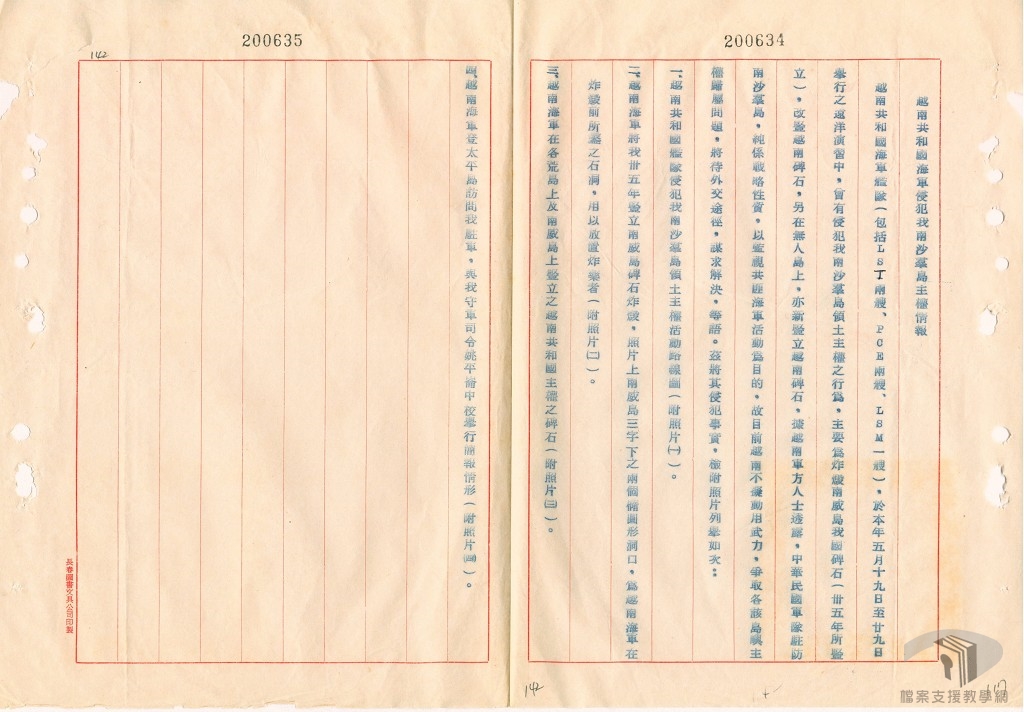 200634
越南共和國海軍侵犯我南沙羣島主權情報
越南共和國海軍艦艇（包括LST兩艘、PCE兩艘、LSM一艘），於本年五月十九日至廿九日
舉行之遠洋演習中，曾有侵犯我南沙羣島領土主權之行爲，主要爲炸燬南威島我國碑石（卅五年所豎
立），改豎越南碑石，另在無人島上，亦新豎立越南碑石，據越南軍方人士透露，中華民國軍隊駐防
南沙羣島，純係戰略性質，以監視共匪海軍活動爲目的，故目前越南不擬動用武力，爭取各該島嶼主
權歸屬問題，將待外交途徑，謀求解決，等語。茲將其侵犯事實，檢附照片列舉如次：
一、越南共和國艦艇侵犯我南沙羣島領土主權活動路線圖（附照片㈠）。
二、越南海軍將我卅五年豎立南威島碑石炸燬，照片上南威島三字下之兩個橢圓形洞口，爲越南海軍在
炸燬前所鑿之石洞，用以放置炸藥者（附照片㈡）。
三、越南海軍在各荒島上及南威島上豎立之越南共和國主權之碑石（附照片㈢）。
142
117
200635
142
四、越南海軍登太平島訪問我駐軍，與我守軍司令姚平備中校舉行簡報情形（附照片㈣）。
長春圖書文具公司印製
檔案支援教學網